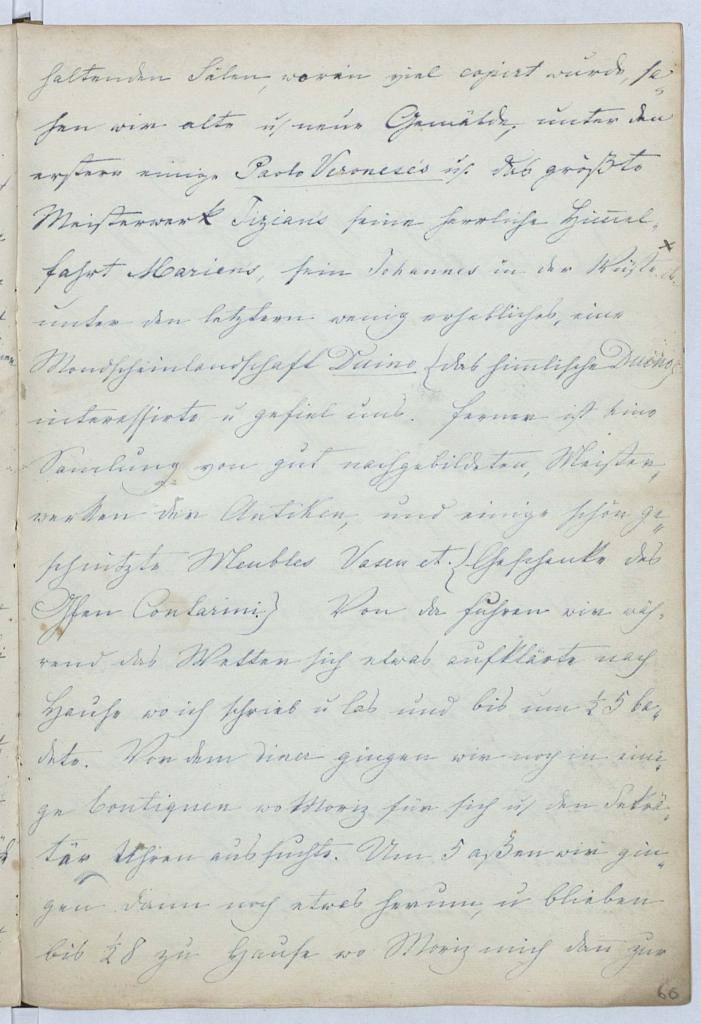 haltenden Sälen, worin viel copirt wurde, sa-
hen wir alte u. neue Gemälde, unter den
erstern einige Paolo Veronese's u. das größte
Meisterwerk Tizian's seine herrliche Himel-
fahrt Mariens, sein Johannes in der Wüste
unter den letztern wenig erhebliches, eine
Mondscheinlandschaft Duino (das himlische Duino)
interessirte u gefiel uns. Ferner ist eine
Samlung von gut nachgebildeten, Meister-
werken der Antiken, und einige schön ge-
schnitzte Meubles Vasen et. (Geschenke des
Gfen Contarini.) Von da fuhren wir wäh-
rend das Wetter sich etwas aufklärte nach
Hause wo ich schrieb u las und bis um ½ 5 ba-
dete. Vor dem Diner gingen wir noch in eini-
ge boutiquen wo Moriz für sich u. den Sekre-
tär Uhren aussuchte. Um 5 aßen wir gin-
gen dann noch etwas herum, u blieben
bis ½ 8 zu Hause wo Moriz mich dan zur
66